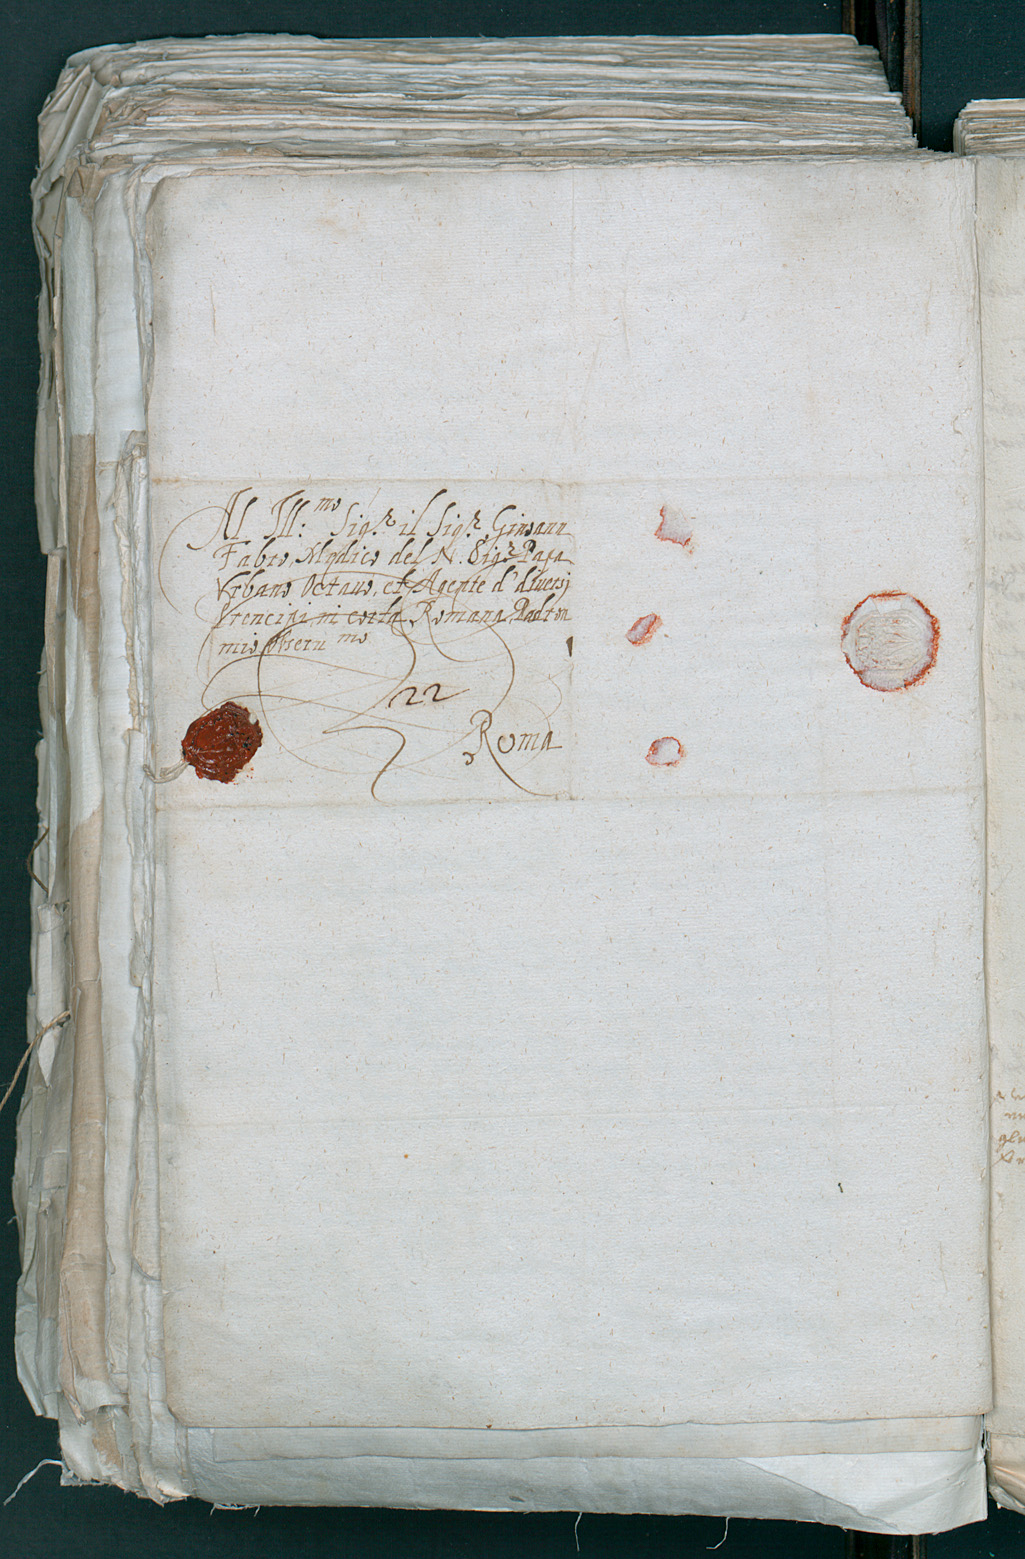 Al Ill:mo Sig.r il Sig.r Giovann
Fabro, Medico del N. Sigr Papa
Vrbano Octavo, et Agente d'diversi
Prencipi ni corta Romana Padron
mio Osseru mo
22
Roma